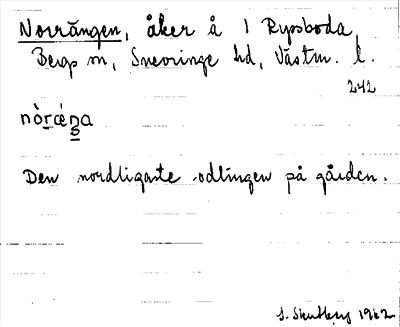 Norrängen, åker å 1 Rysboda,
Bergs sn, Snevringe hd, Västm. l.
242
nòrǽŋa
Den nordligaste odlingen på gården.
S. Skutberg 1962